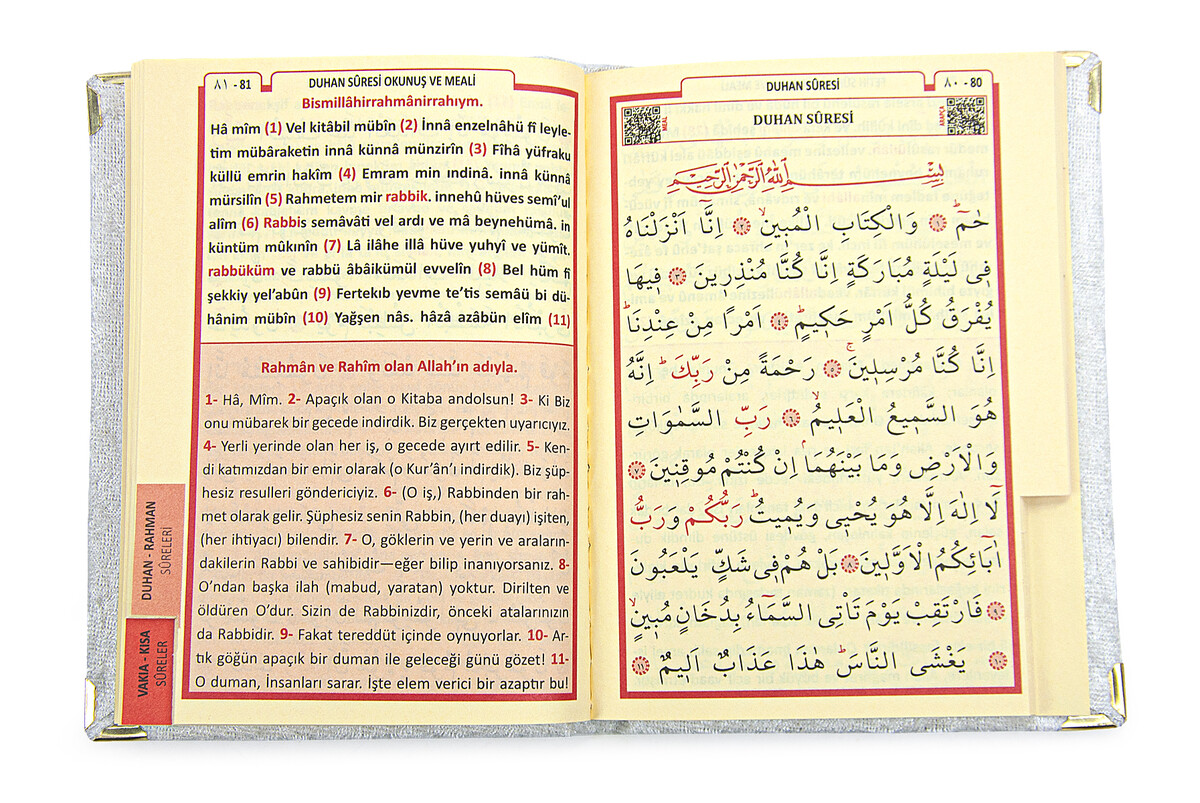 DUHAN SÛRESİ
٨٠ - 80
MEAL
DUHAN SÛRESİ
ARAPÇA
بِسْمِ اللّٰهِ الرَّحْمٰنِ الرَّحٖيمِ
حٰمٓۜ ﴿١﴾ وَالْكِتَابِ الْمُبٖينِۙ ﴿٢﴾ اِنَّٓا اَنْزَلْنَاهُ
فٖي لَيْلَةٍ مُبَارَكَةٍ اِنَّا كُنَّا مُنْذِرٖينَ ﴿٣﴾ فٖيهَا
يُفْرَقُ كُلُّ اَمْرٍ حَكٖيمٍۜ ﴿٤﴾ اَمْرًا مِنْ عِنْدِنَاۜ
اِنَّا كُنَّا مُرْسِلٖينَۚ ﴿٥﴾ رَحْمَةً مِنْ رَبِّكَۜ اِنَّهُ
هُوَ السَّمٖيعُ الْعَلٖيمُۙ ﴿٦﴾ رَبِّ السَّمٰوَاتِ
وَالْاَرْضِ وَمَا بَيْنَهُمَاۢ اِنْ كُنْتُمْ مُوقِنٖينَ ﴿٧﴾
لَٓا اِلٰهَ اِلَّا هُوَ يُحْيٖي وَيُمٖيتُۜ رَبُّكُمْ وَرَبُّ
اٰبَٓائِكُمُ الْاَوَّلٖينَ ﴿٨﴾ بَلْ هُمْ فٖي شَكٍّ يَلْعَبُونَ
﴿٩﴾ فَارْتَقِبْ يَوْمَ تَأْتِي السَّمَٓاءُ بِدُخَانٍ مُبٖينٍۙ
﴿١٠﴾ يَغْشَى النَّاسَۜ هٰذَا عَذَابٌ اَلٖيمٌ ﴿١١﴾
٨١ - 81
DUHAN SÛRESİ OKUNUŞ VE MEALİ
Bismillâhirrahmânirrahıym.
Hâ mîm (1) Vel kitâbil mübîn (2) İnnâ enzelnâhü fî leyle-
tim mübâraketin innâ künnâ münzirîn (3) Fîhâ yüfraku
küllü emrin hakîm (4) Emram min ındinâ. innâ künnâ
mürsilîn (5) Rahmetem mir rabbik. innehû hüves semî'ul
alîm (6) Rabbis semâvâti vel ardı ve mâ beynehümâ. in
küntüm mûkınîn (7) Lâ ilâhe illâ hüve yuhyî ve yümît.
rabbüküm ve rabbü âbâikümül evvelîn (8) Bel hüm fî
şekkiy yel'abûn (9) Fertekıb yevme te'tis semâü bi dü-
hânim mübîn (10) Yağşen nâs. hâzâ azâbün elîm (11)
Rahmân ve Rahîm olan Allah'ın adıyla.
1- Hâ, Mîm. 2- Apaçık olan o Kitaba andolsun! 3- Ki Biz
onu mübarek bir gecede indirdik. Biz gerçekten uyarıcıyız.
4- Yerli yerinde olan her iş, o gecede ayırt edilir. 5- Ken-
di katımızdan bir emir olarak (o Kur'ân'ı indirdik). Biz şüp-
hesiz resulleri göndericiyiz. 6- (O iş,) Rabbinden bir rah-
met olarak gelir. Şüphesiz senin Rabbin, (her duayı) işiten,
(her ihtiyacı) bilendir. 7- O, göklerin ve yerin ve araların-
dakilerin Rabbi ve sahibidir—eğer bilip inanıyorsanız. 8-
O'ndan başka ilah (mabud, yaratan) yoktur. Dirilten ve
öldüren O'dur. Sizin de Rabbinizdir, önceki atalarınızın
da Rabbidir. 9- Fakat tereddüt içinde oynuyorlar. 10- Ar-
tık göğün apaçık bir duman ile geleceği günü gözet! 11-
O duman, İnsanları sarar. İşte elem verici bir azaptır bu!
DUHAN - RAHMAN
SÛRELERİ
VAKIA - KISA
SÛRELER